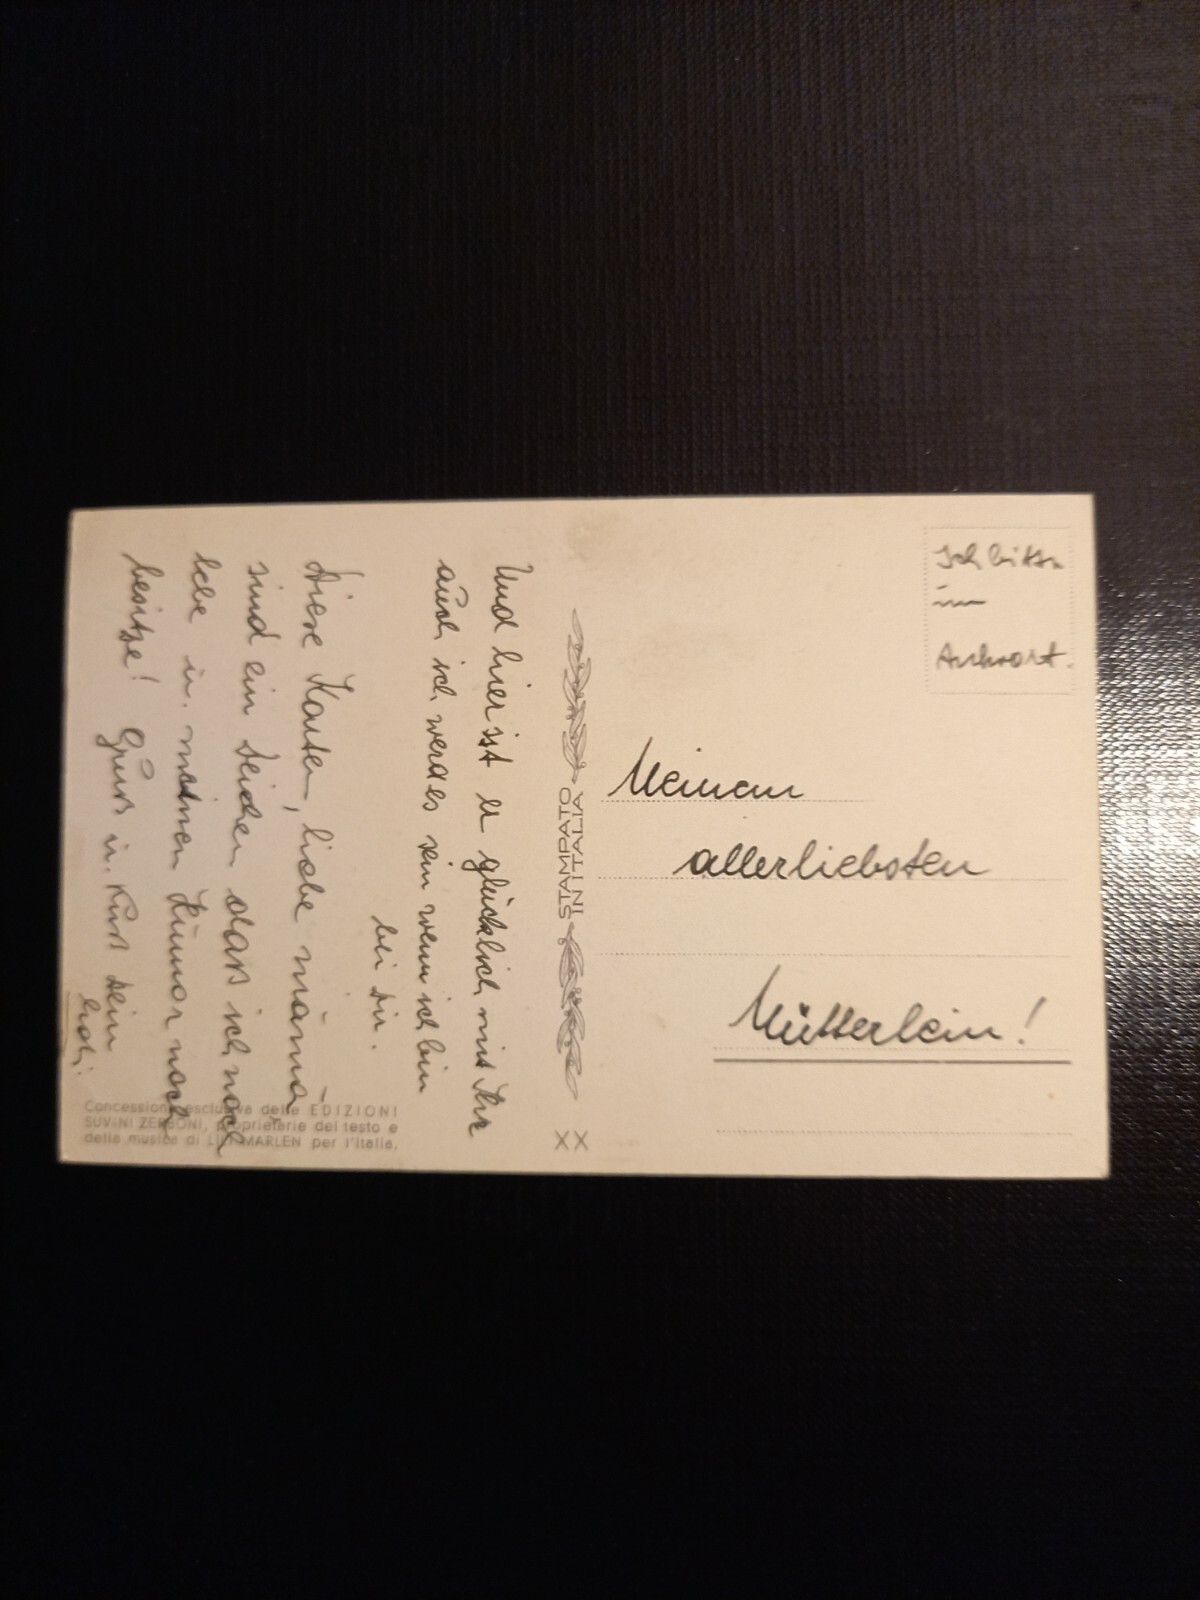 Und hier ist er glücklich mit Ihr
auch ich werde es sein wenn ich bin
bei Dir.
Diese Karten, liebe Mama
sind ein Zeichen dass ich noch
lebe u. meinen Humor noch
besitze! Gruss u. Kuss Dein
STAMPATO
IN ITALIA
XX
Concessione esclusiva delle EDIZIONI
SUVINI ZERBONI, proprietarie del testo e
della musica di LILI MARLEN per l'Italia.
Ich bitte
um
Antwort.
Meinem
allerliebsten
Mütterlein!